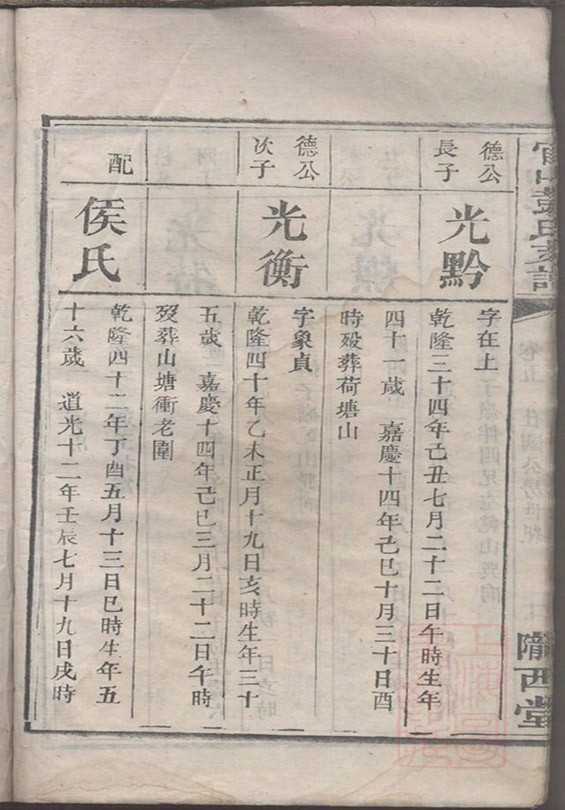 隴西堂
德公
長子
光黔
字在上
乾隆三十四年己丑七月二十二日午時生年
四十一歲　嘉慶十四年己巳十月三十日酉
時殁葬荷塘山
德公
次子
光衡
字象貞
乾隆四十年乙未正月十九日亥時生年三十
五歲　嘉慶十四年己巳三月二十二日午時
殁葬山塘衝老圍
配
侯氏
乾隆四十二年丁酉五月十三日巳時生年五
十六歲　道光十二年壬辰七月十九日戌時